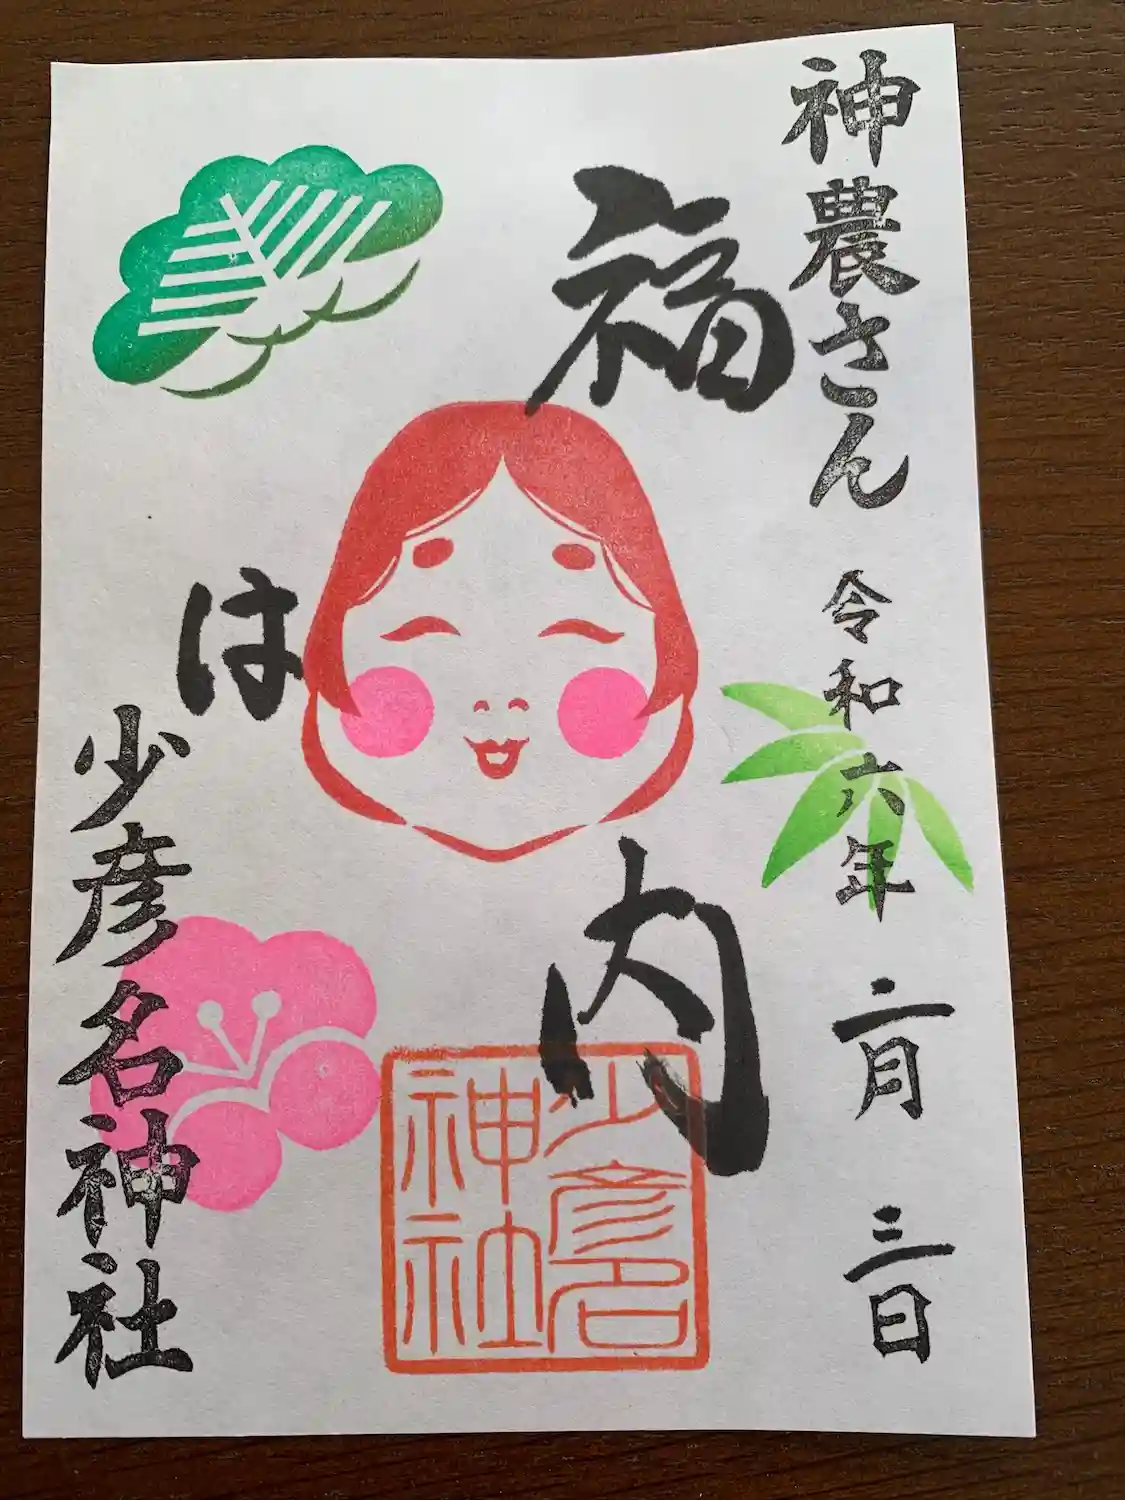 神農さん 令和六年 二月 三日
福
は
内
少彦名神社
少彦名
神社